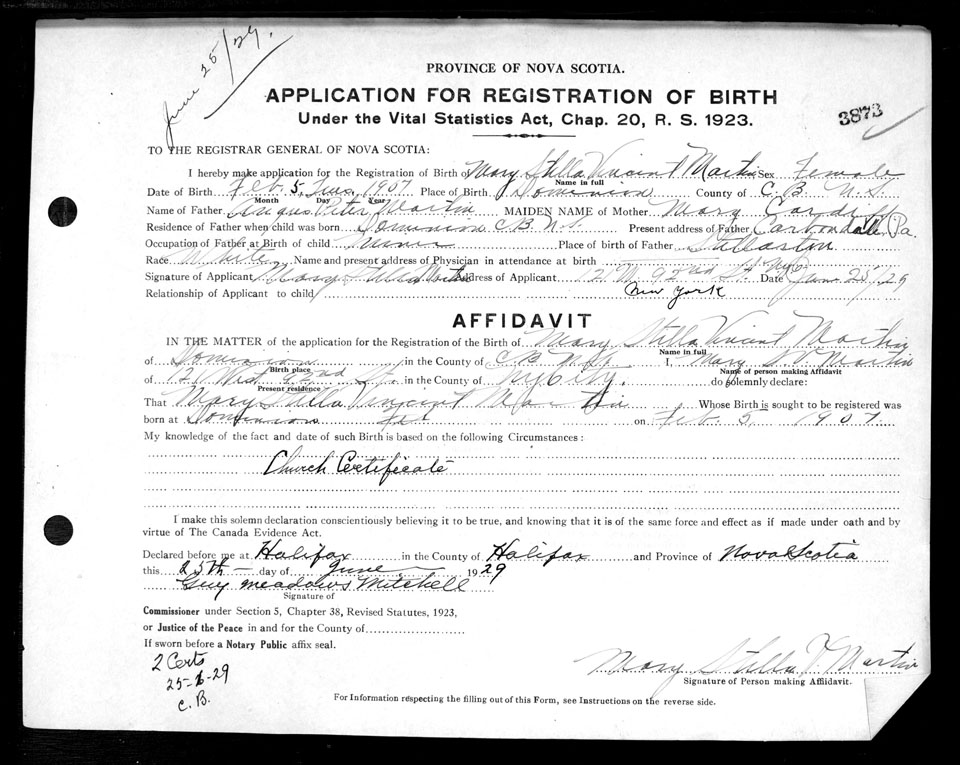 June 25/29.
PROVINCE OF NOVA SCOTIA.
APPLICATION FOR REGISTRATION OF BIRTH
Under the Vital Statistics Act, Chap. 20, R. S. 1923.
3873
TO THE REGISTRAR GENERAL OF NOVA SCOTIA:
I hereby make application for the Registration of Birth of Mary Stella Vincent Martin Sex Female
Name in full
Date of Birth Feb. 5, 1907 Place of Birth Dominion County of C. B. N. S.
Month Day Year
Name of Father Angus Peter Martin MAIDEN NAME of Mother Mary
Residence of Father when child was born Dominion C B N.S. Present address of Father Carbondale Pa.
Occupation of Father at Birth of child Place of birth of Father Stellarton
Race White Name and present address of Physician in attendance at birth
Signature of Applicant Mary Stella Address of Applicant 121 W 92nd St. NYC Date June 25/29
New York
Relationship of Applicant to child
AFFIDAVIT
IN THE MATTER of the application for the Registration of the Birth of Mary Stella Vincent Martin
Name in full
of Dominion in the County of C B N.S. I, Mary S V Martin
Birth place Name of person making Affidavit
of 121 West 92nd St. in the County of NY City. do solemnly declare:
Present residence
That Mary Stella Vincent Martin Whose Birth is sought to be registered was
born at Dominion on Feb. 5 1907
My knowledge of the fact and date of such Birth is based on the following Circumstances:
Church Certificate
I make this solemn declaration conscientiously believing it to be true, and knowing that it is of the same force and effect as if made under oath and by
virtue of The Canada Evidence Act.
Declared before me at Halifax in the County of Halifax and Province of Nova Scotia
this 25th day of June 1929
Guy Meadows Mitchell
Signature of
Commissioner under Section 5, Chapter 38, Revised Statutes, 1923,
or Justice of the Peace in and for the County of
If sworn before a Notary Public affix seal.
2 Certs
25-6-29
C. B.
Mary Stella V. Martin
Signature of Person making Affidavit.
For Information respecting the filling out of this Form, see Instructions on the reverse side.